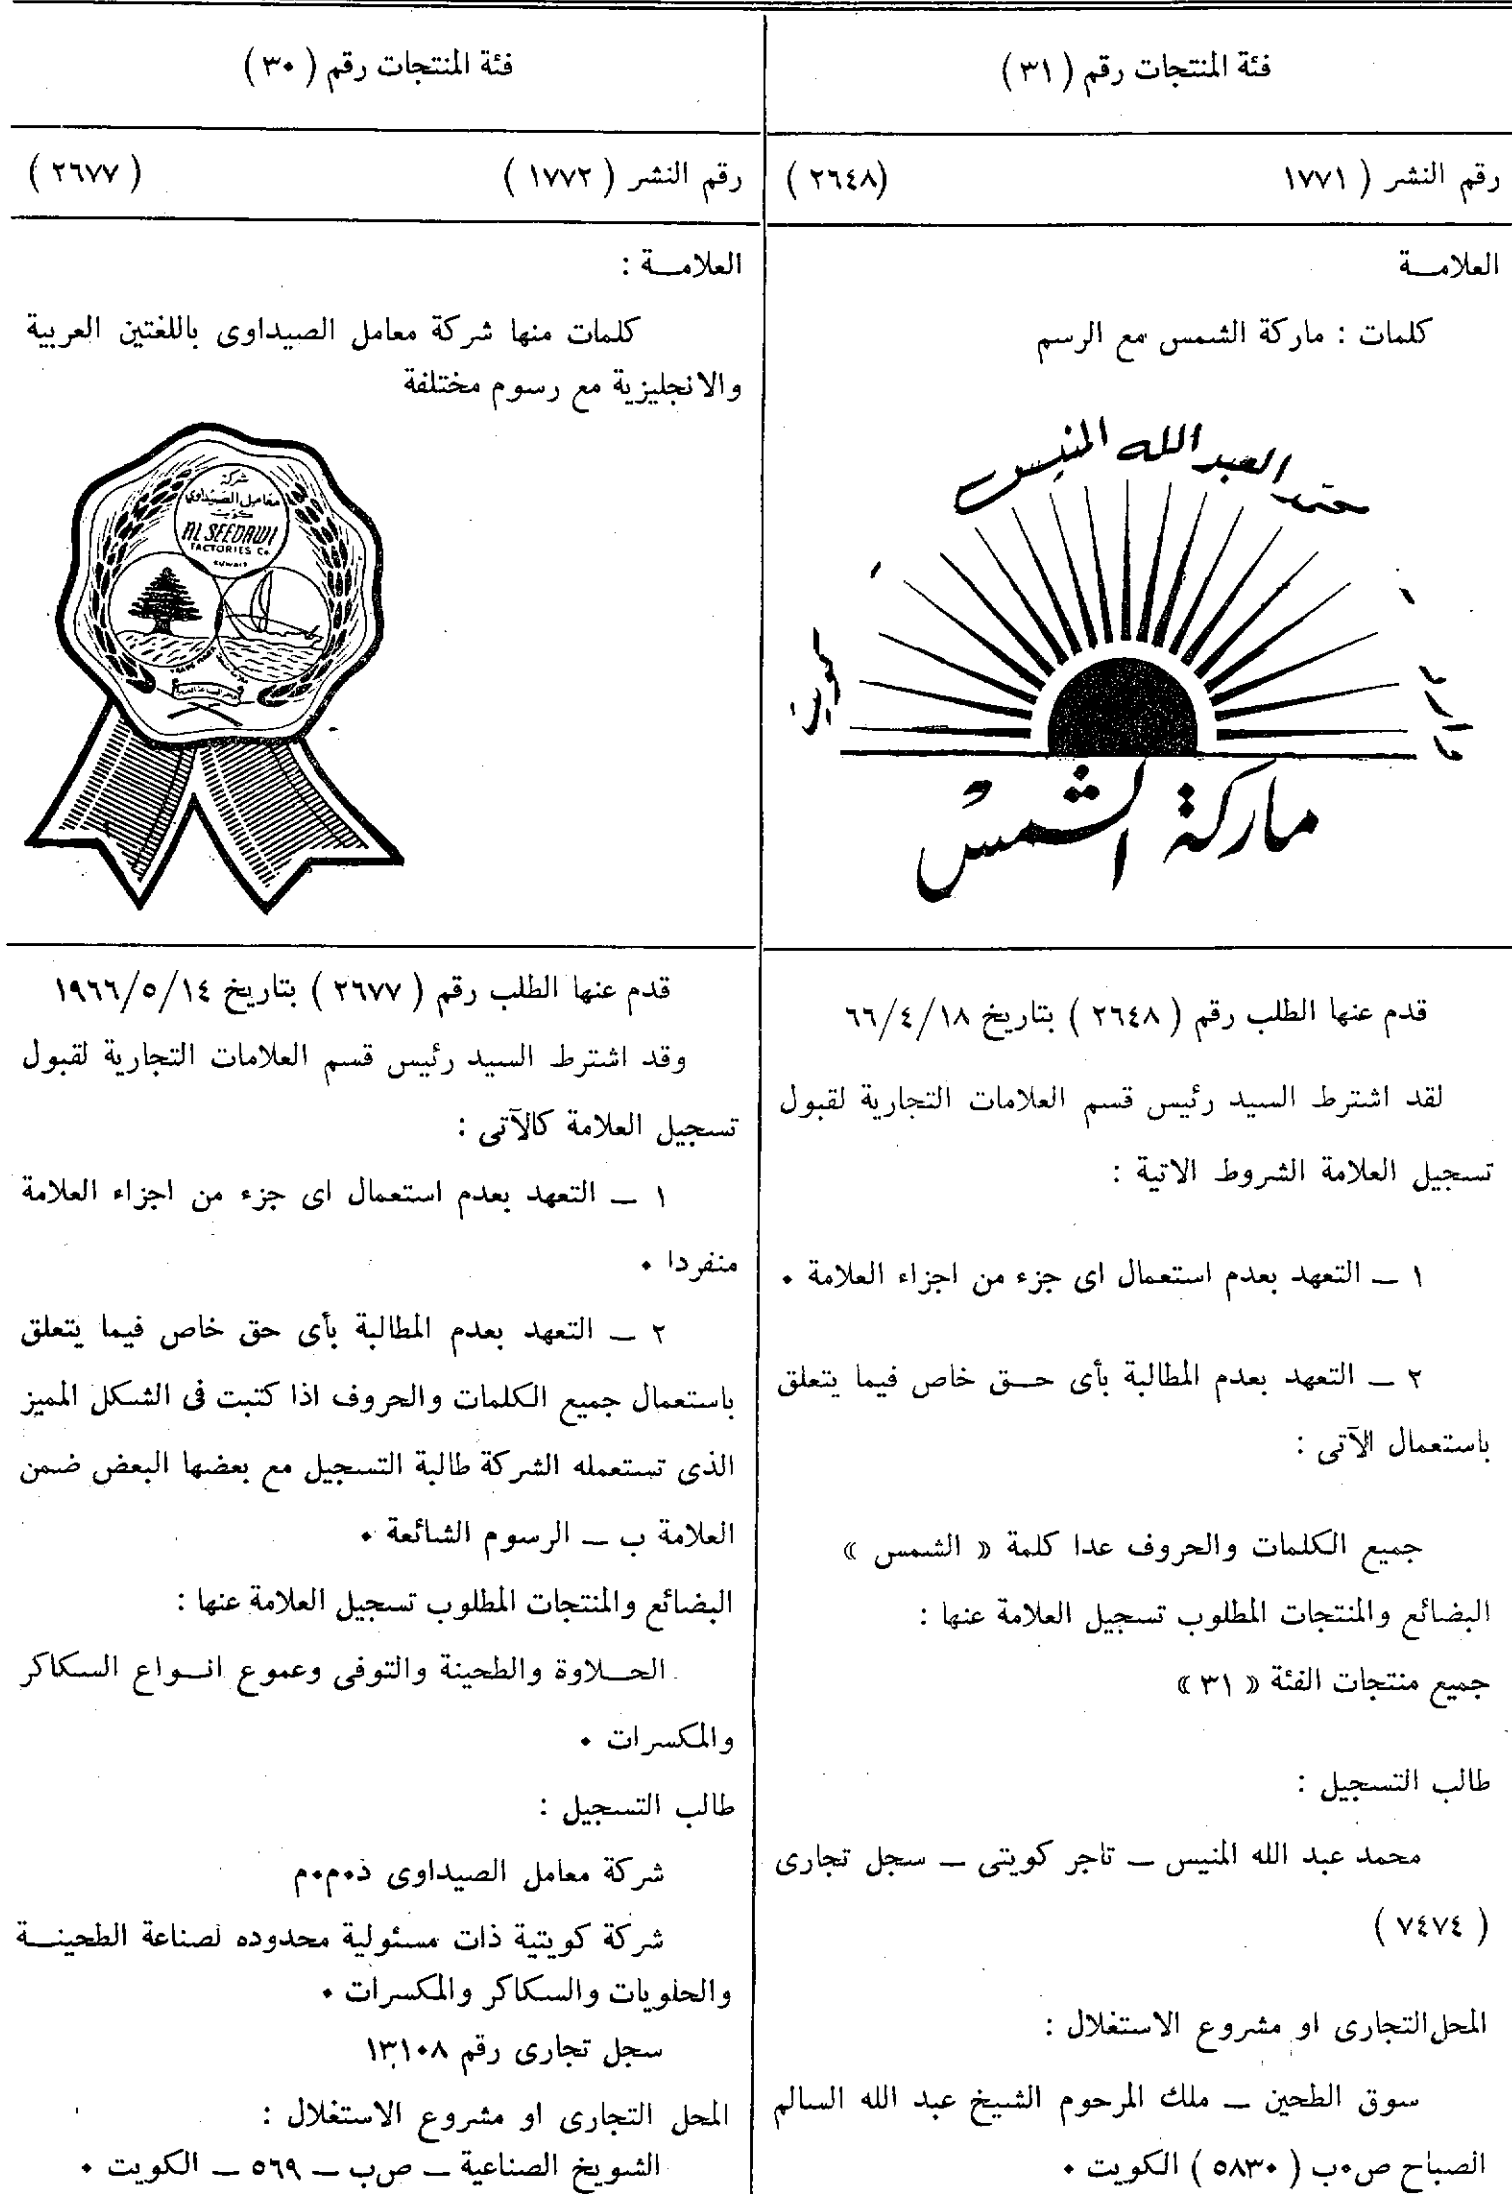 فئة المنتجات رقم ( ٣١ )
رقم النشر ( ١٧٧١ (٢٦٤٨ )
العلامـــة
كلمات : ماركة الشمس مع الرسم
محمد العبد الله المنيس
وارد
كويت
ماركة الشمس
قدم عنها الطلب رقم ( ٢٦٤٨ ) بتاريخ ٦٦/٤/١٨
لقد اشترط السيد رئيس قسم العلامات التجارية لقبول
تسجيل العلامة الشروط الاتية :
١ ــ التعهد بعدم استعمال اى جزء من اجزاء العلامة ٠
٢ ــ التعهد بعدم المطالبة بأى حـــق خاص فيما يتعلق
باستعمال الآتى :
جميع الكلمات والحروف عدا كلمة « الشمس »
البضائع والمنتجات المطلوب تسجيل العلامة عنها :
جميع منتجات الفئة « ٣١ »
طالب التسجيل :
محمد عبد الله المنيس ــ تاجر كويتى ــ سجل تجارى
( ٧٤٧٤ )
المحل التجارى او مشروع الاستغلال :
سوق الطحين ــ ملك المرحوم الشيخ عبد الله السالم
الصباح ص٠ب ( ٥٨٣٠ ) الكويت ٠
فئة المنتجات رقم ( ٣٠ )
رقم النشر ( ١٧٧٢ ) ( ٢٦٧٧ )
العلامـــة :
كلمات منها شركة معامل الصيداوى باللغتين العربية
والانجليزية مع رسوم مختلفة
شركة
معامل الصيداوي
كويت
AL SEEDAWI
FACTORIES Co
KUWAIT
قدم عنها الطلب رقم ( ٢٦٧٧ ) بتاريخ ١٩٦٦/٥/١٤
وقد اشترط السيد رئيس قسم العلامات التجارية لقبول
تسجيل العلامة كالآتى :
١ ــ التعهد بعدم استعمال اى جزء من اجزاء العلامة
منفردا ٠
٢ ــ التعهد بعدم المطالبة بأى حق خاص فيما يتعلق
باستعمال جميع الكلمات والحروف اذا كتبت فى الشكل المميز
الذى تستعمله الشركة طالبة التسجيل مع بعضها البعض ضمن
العلامة ب ــ الرسوم الشائعة ٠
البضائع والمنتجات المطلوب تسجيل العلامة عنها :
الحـــلاوة والطحينة والتوفى وعموع انـــواع السكاكر
والمكسرات ٠
طالب التسجيل :
شركة معامل الصيداوى ذ٠م٠م
شركة كويتية ذات مسئولية محدوده لصناعة الطحينـــة
والحلويات والسكاكر والمكسرات ٠
سجل تجارى رقم ١٣١٠٨
المحل التجارى او مشروع الاستغلال :
الشويخ الصناعية ــ ص٠ب ــ ٥٦٩ ــ الكويت ٠